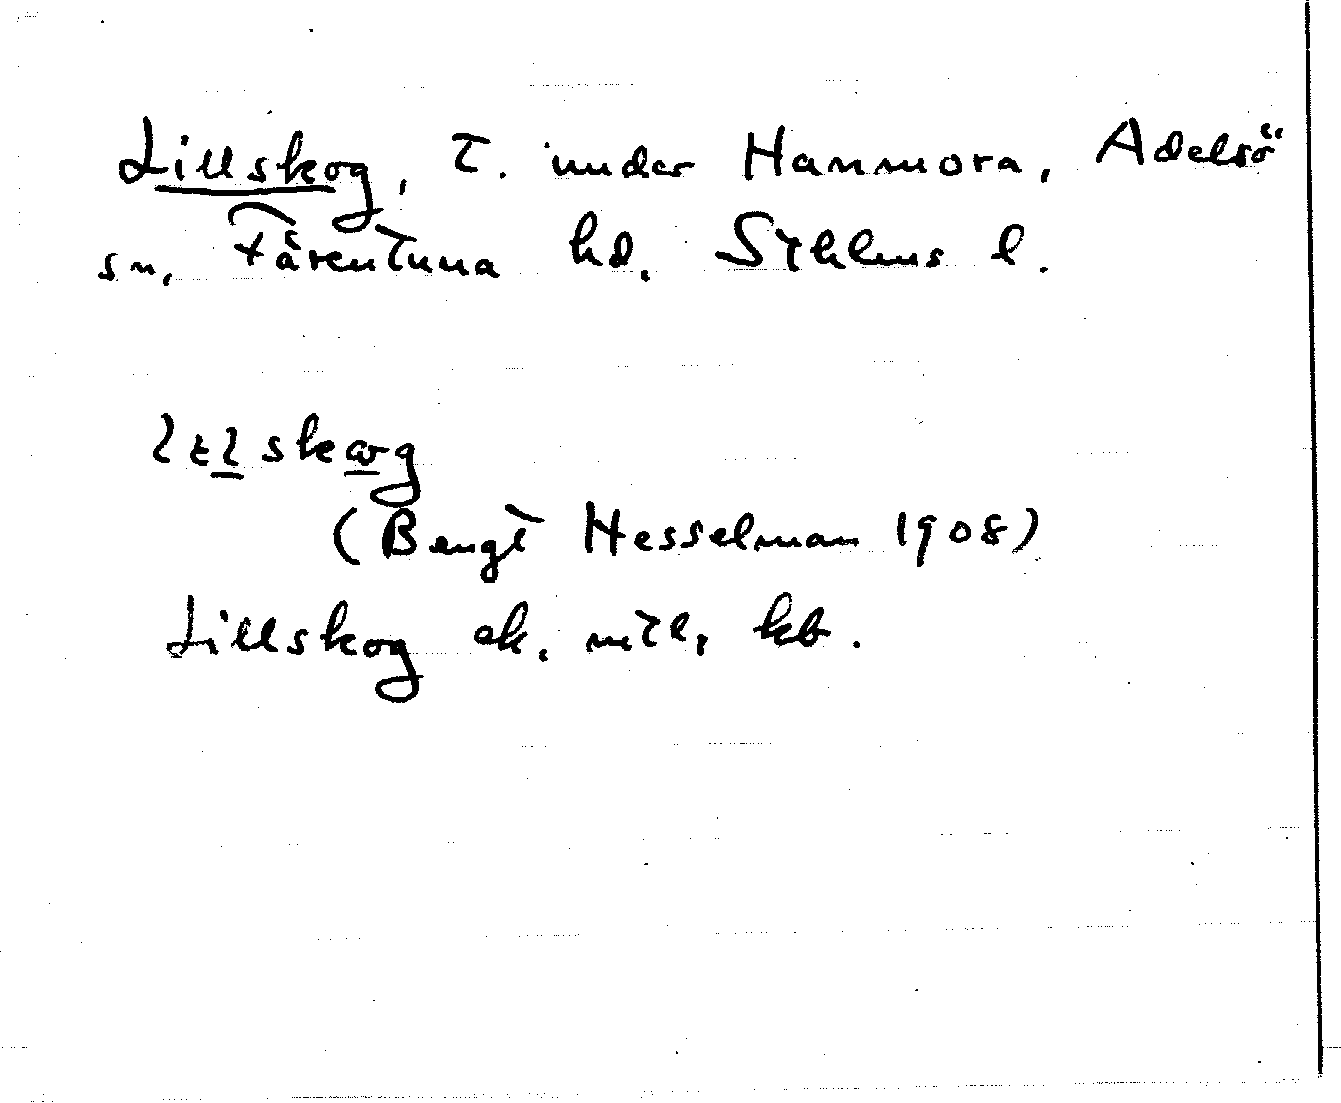 Lillskog, T. under Hanmora, Adelsö
sn, Färentuna hd. Sthlms l.
(Bengt Hesselman 1908)
Lillskog ek. mtl, kb.